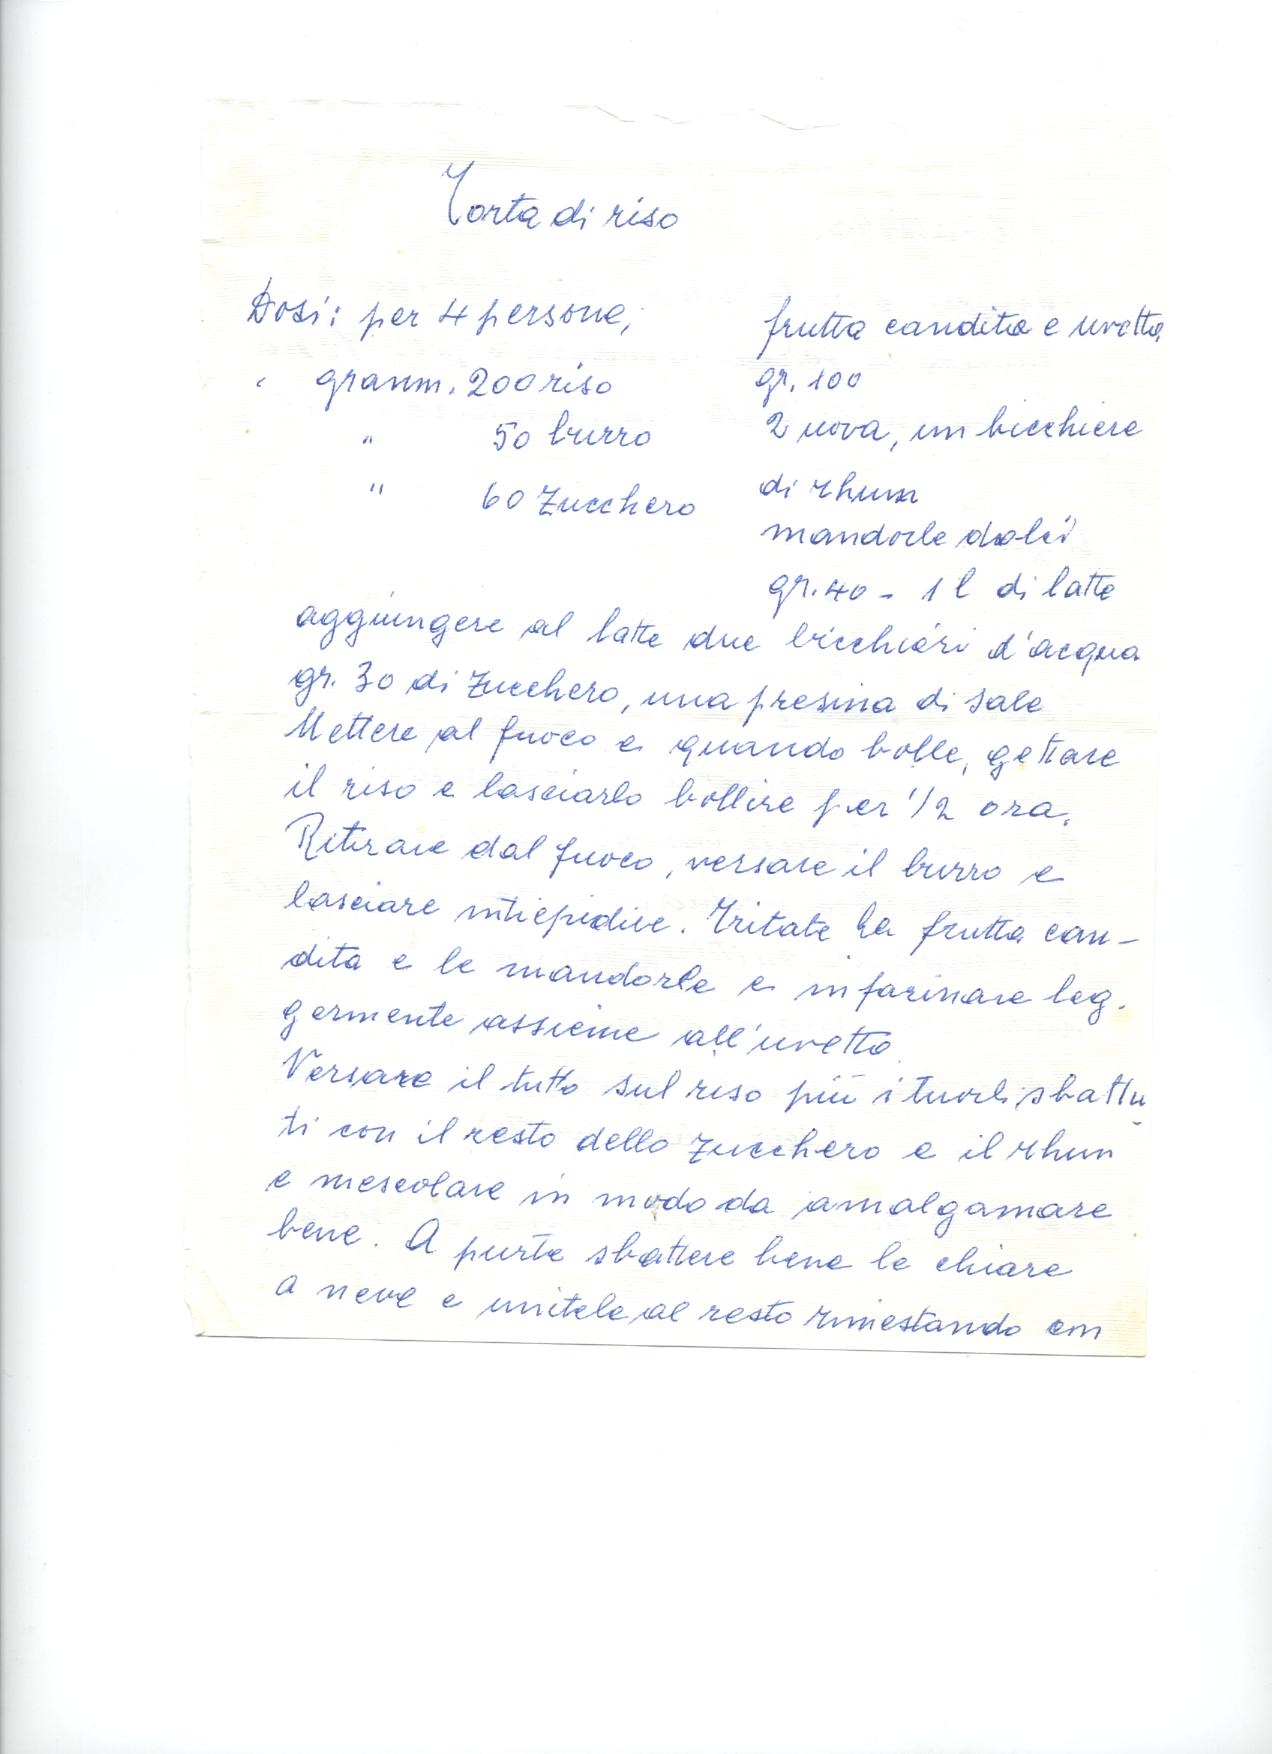 Torta di riso
Dosi: per 4 persone,
gramm. 200 riso
" 50 burro
" 60 Zucchero
frutta candita e uvetta
gr. 100
2 uova, un bicchiere
di rhum
mandorle dolci
gr. 40 - 1 l di latte
aggiungere al latte due bicchieri d'acqua
gr. 30 di Zucchero, una presina di sale
Mettere al fuoco e quando bolle, gettare
il riso e lasciarlo bollire per 1/2 ora.
Ritirare dal fuoco, versare il burro e
lasciare intiepidire. Tritate la frutta can-
dita e le mandorle e infarinare leg.
germente assieme all'uvetta.
Versare il tutto sul riso più i tuorli sbattu-
ti con il resto dello zucchero e il rhum
e mescolare in modo da amalgamare
bene. A parte sbattere bene le chiare
a neve e unitele al resto rimestando con